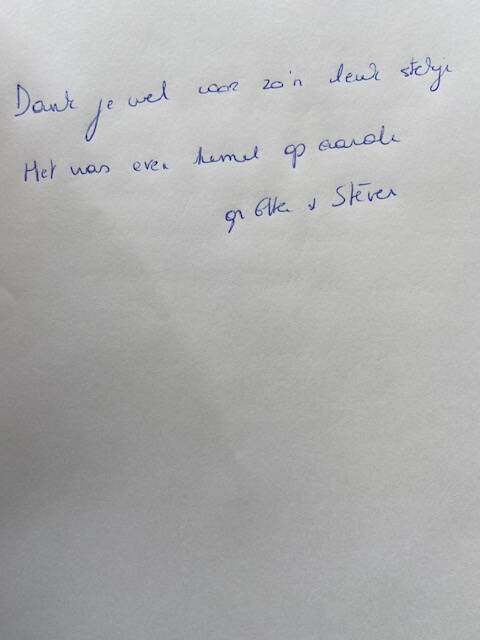 Dank je wel voor zo'n leuk stekje
Het was even hemel op aarde
gr Elke & Steven